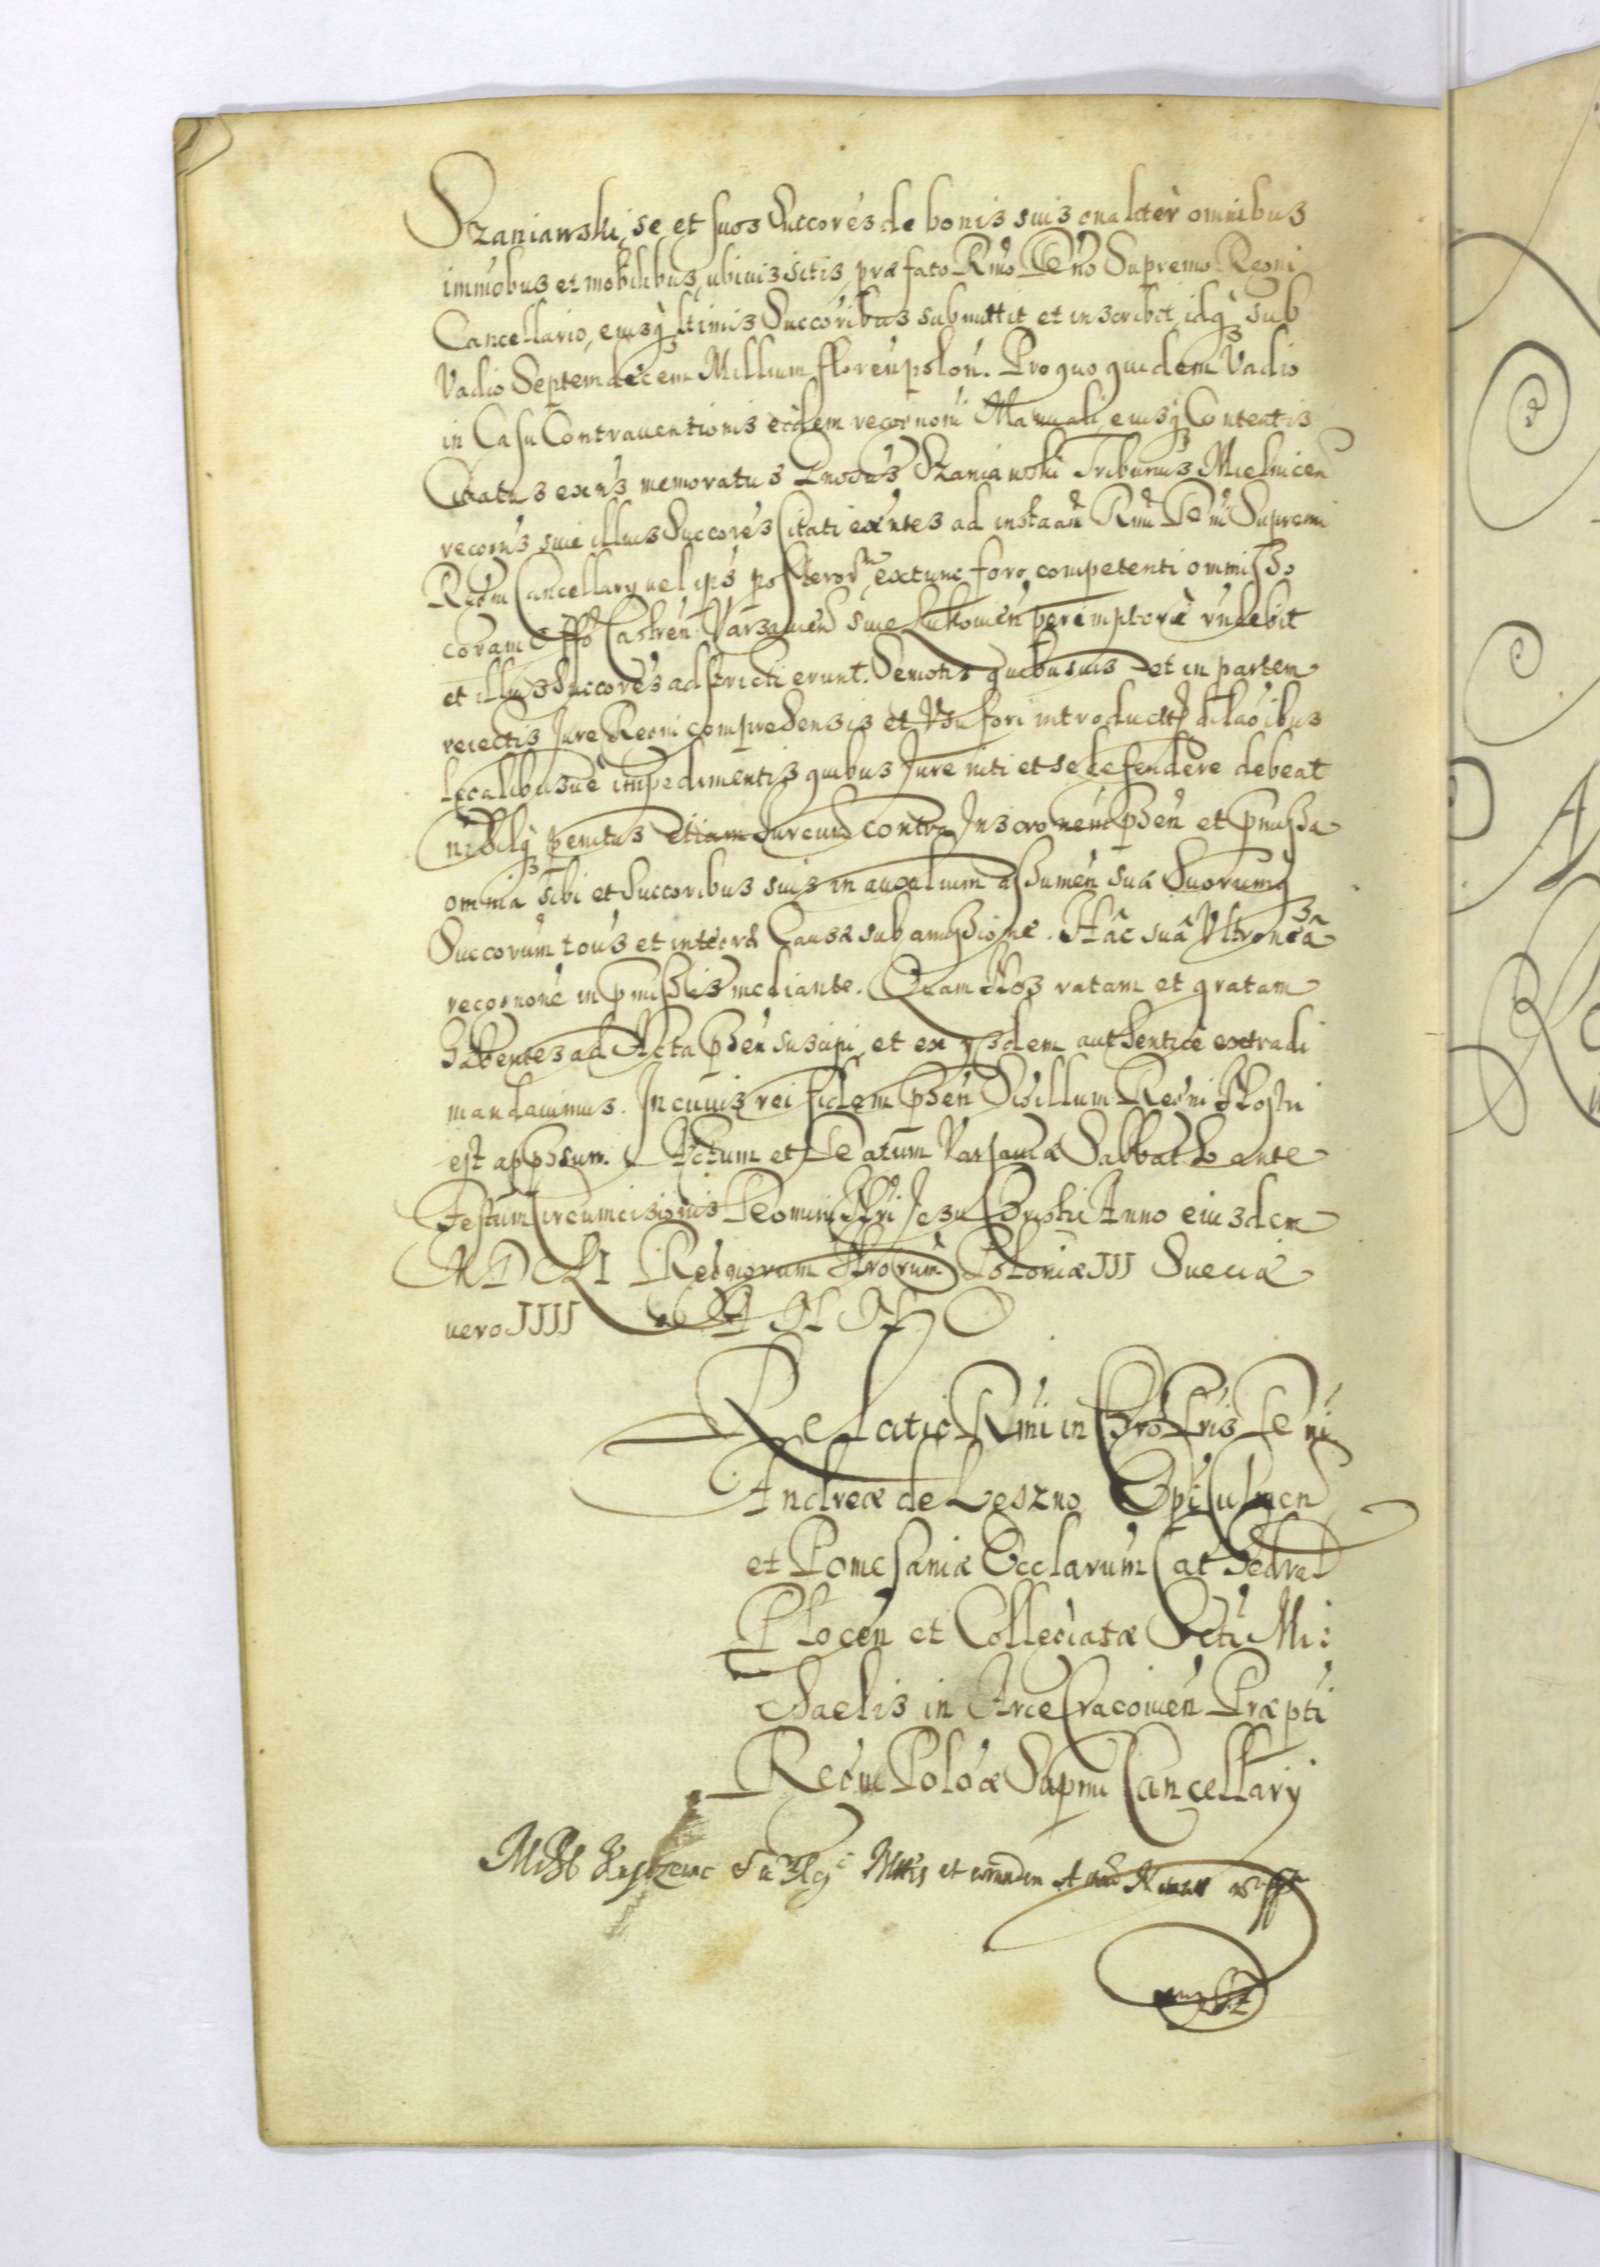 Szaniawski, se et suos Succores de bonis suis gnaliter omnibus
immobus et mobilibus, ubiuis sitis, præfato Rmo Dno Supremo Regni
Cancellario, eiusq ltimis Succoribus submittit et inscribit, idq sub
Vadio Septemdecem Millium floren polon. Pro quo quidem Vadio
in Casu Contrauentionis eidem recognoni Manuali, eiusq Contentis
Citatus exns memoratus Gnosus Szaniawski Tribunus Mielnicen
recogns, siue illius Succores Citati exentes ad instaan Rmi Dni Supremi
Regni Cancellary uel ipsi posteror, extunc foro competenti ommisso
coram Offo Castren Varsauien siue Lukouien peremptorie rndebit
et illius Succores adstricti erunt. Semotis quibusuis et in partem
reiectis Jure Regni comprehensis et Vsu fori introductis dilaoibus
legalibusue impedimentis quibus Jure niti et se defendere debeat
nihilq penitus etiam Jureiurd contra Inscronem psen et pmissa
omnia sibi et Succoribus suis in auxilium assumen sua Suorumq
Succorum tous et integra Causæ sub amissione. Hac sua Vltronea
recognone in pmissis mediante. Quam Nos ratam et gratam
habentes ad Acta psen suscipi, et ex ysdem authentice extradi
mandauimus. In cuius rei fidem psen Sigillum Regni Nostri
est appsum. Actum et Datum Varsauiæ Sabbatho ante
Festum Circumcisionis Domini Nri Jesu Christi Anno eiusdem
MDCLI Regnorum Nrorum Poloniæ III Sueciæ
uero IIII ANNO
Relatio Rmi in Chro Pris Dni
Andreæ de Leszno Epi Culmen
et Pomesaniæ Ecclarum Cathedral
Plocen et Collegiatæ Scti Mi:
chaelis in Arce Cracouien Præpti
Regni Poloæ Supmi Cancellary
Mttis et